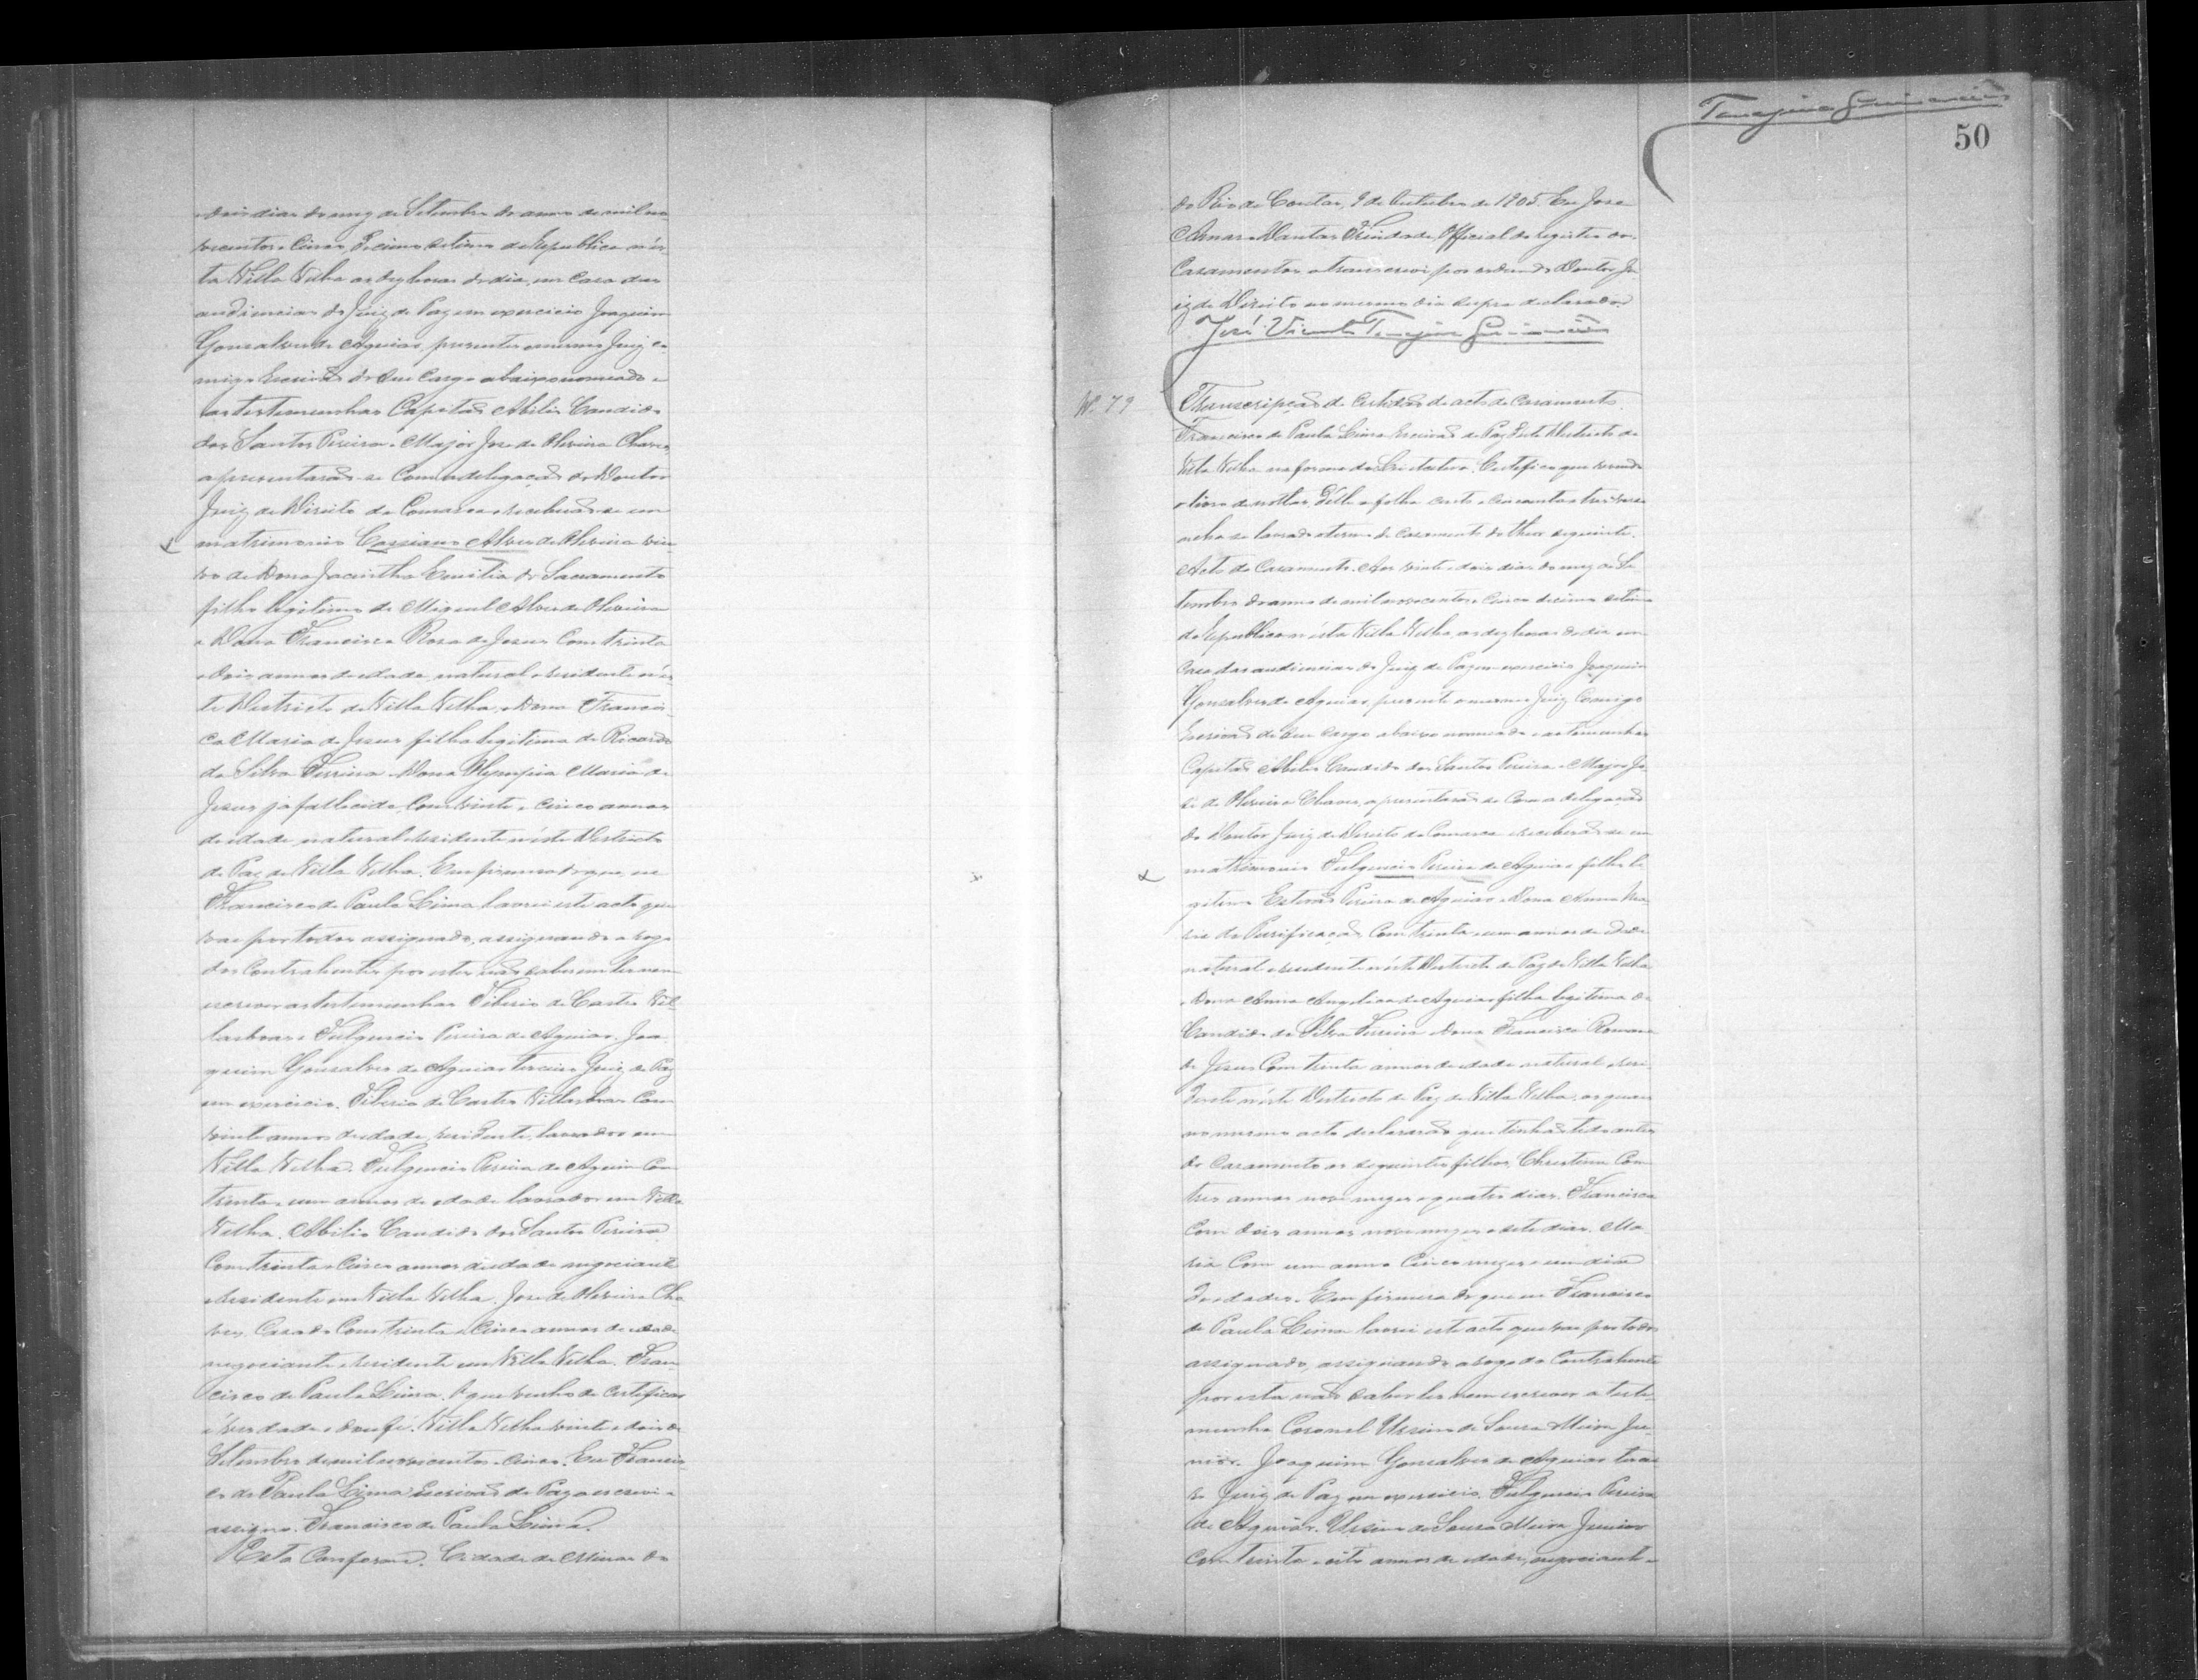 e dois dias do mez de Setembro do anno de mil no
vecentos e cinco, Decimo setimo da Republica n'es
ta Villa Velha as dez horas do dia, em casa das
audiencias do Juiz de Paz em exercicio Joaquim
Gonsalves de Aguiar, presentes o mesmo Juiz co
migo Escrivão de seu cargo abaixo nomeado e
as testemunhas Capitão Abilio Candido
dos Santos Pereira e Major José de Oliveira Chaves,
apresentarão-se com a delegação do Doutor
Juiz de Direito da Comarca e receberão-se em
matrimonio Cassiano Alves de Oliveira viu
vo de Dona Jacintha Emilia do Sacramento
filho legitimo de Miguel Alves de Oliveira
e Dona Francisca Rosa de Jesus com trinta
e dois annos de idade, natural e residente n'es
te Districto de Villa Velha, e Dona Francis
ca Maria de Jesus filha legitima de Ricardo
da Silva Ferreira e Dona Olympia Maria de
Jesus já fallecida, com vinte e cinco annos
de idade, natural e residente n'este Districto
de Paz de Villa Velha. Em firmesa do que eu
Francisco de Paula Lima lavrei este acto que
vae por todos assignado, assignando a rogo
dos Contrahentes por estes não saberem ler nem
escrever as testemunhas Tiberio de Castro Vil
lasboas e Fulgencio Pereira de Aguiar. Joa
quim Gonsalves de Aguiar terceiro Juiz de Paz
em exercicio. Tiberio de Castro Villasboas com
vinte annos de idade, residente, lavrador em
Villa Velha. Fulgencio Pereira de Aguiar com
trinta e um annos de idade lavrador em Villa
Velha. Abilio Candido dos Santos Pereira
com trinta e cinco annos de idade negociante
e residente em Villa Velha. José de Oliveira Cha
ves, casado com trinta e cinco annos de idade
negociante e residente em Villa Velha. Fran
cisco de Paula Lima. O que venho de certificar
é verdade e dou fé. Villa Velha vinte e dois de
Setembro de mil novecentos e cinco. Eu Francis
co de Paula Lima Escrivão de Paz o escrevi e
assigno. Francisco de Paula Lima.
Está Conforme. Cidade de Minas do
50
do Rio de Contas, 9 de Outubro de 1905. Eu José
Dantas Trindade, Official do registro do
Casamentos a transcrevi por ordem do Doutor Ju
iz de Direito no mesmo dia supra declarado.
José Vicente Tanajura Guimarães
N. 79
Transcripção da Certidão do acto de Casamento.
Francisco de Paula Lima Escrivão de Paz d'este Districto de
Villa Velha na forma da Lei etc. Certifico que revendo
o livro de nottas d'elle a folha cento e cincoenta e tres verso
acha-se lavrado o termo de casamento do theor seguinte.
Acto de Casamento. Aos vinte e dois dias do mez de Se
tembro do anno de mil novecentos e cinco decimo setimo
da Republica n'esta Villa Velha, as dez horas do dia em
casa das audiencias do Juiz de Paz em exercicio Joaquim
Gonsalves de Aguiar, presente o mesmo Juiz comigo
Escrivão de seu cargo abaixo nomeado e as testemunhas
Capitão Abilio Candido dos Santos Pereira e Major Jo
sé de Oliveira Chaves, apresentarão-se com a delegação
do Doutor Juiz de Direito da Comarca e receberão-se em
matrimonio Fulgencio Pereira de Aguiar filho le
gitimo Estevão Pereira de Aguiar e Dona Anna Ma
ria da Purificação com trinta e um annos de idade
natural e residente n'este Districto de Paz de Villa Velha
e Dona Anna Angelica de Aguiar filha legitima de
Candido da Silva Ferreira e Dona Francisca Romana
de Jesus com trinta annos de idade natural e resi
dente n'este Districto de Paz de Villa Velha, os quaes
no mesmo acto declararão que tinhão tido antes
do casamento os seguintes filhos, Christina com
tres annos nove mezes e quatro dias. Francisca
com dois annos nove mezes e sete dias. Ma
ria com um anno cinco mezes e um dia
de idades. Em firmesa do que eu Francisco
de Paula Lima lavrei este acto que vae por todos
assignado, assignando a rogo da Contrahente
por esta não saber ler nem escrever a teste
munha Coronel Ursino de Sousa Meira Ju
nior. Joaquim Gonsalves de Aguiar tercei
ro Juiz de Paz em exercicio. Fulgencio Pereira
de Aguiar. Ursino de Sousa Meira Junior
com trinta e oito annos de idade, negociante e